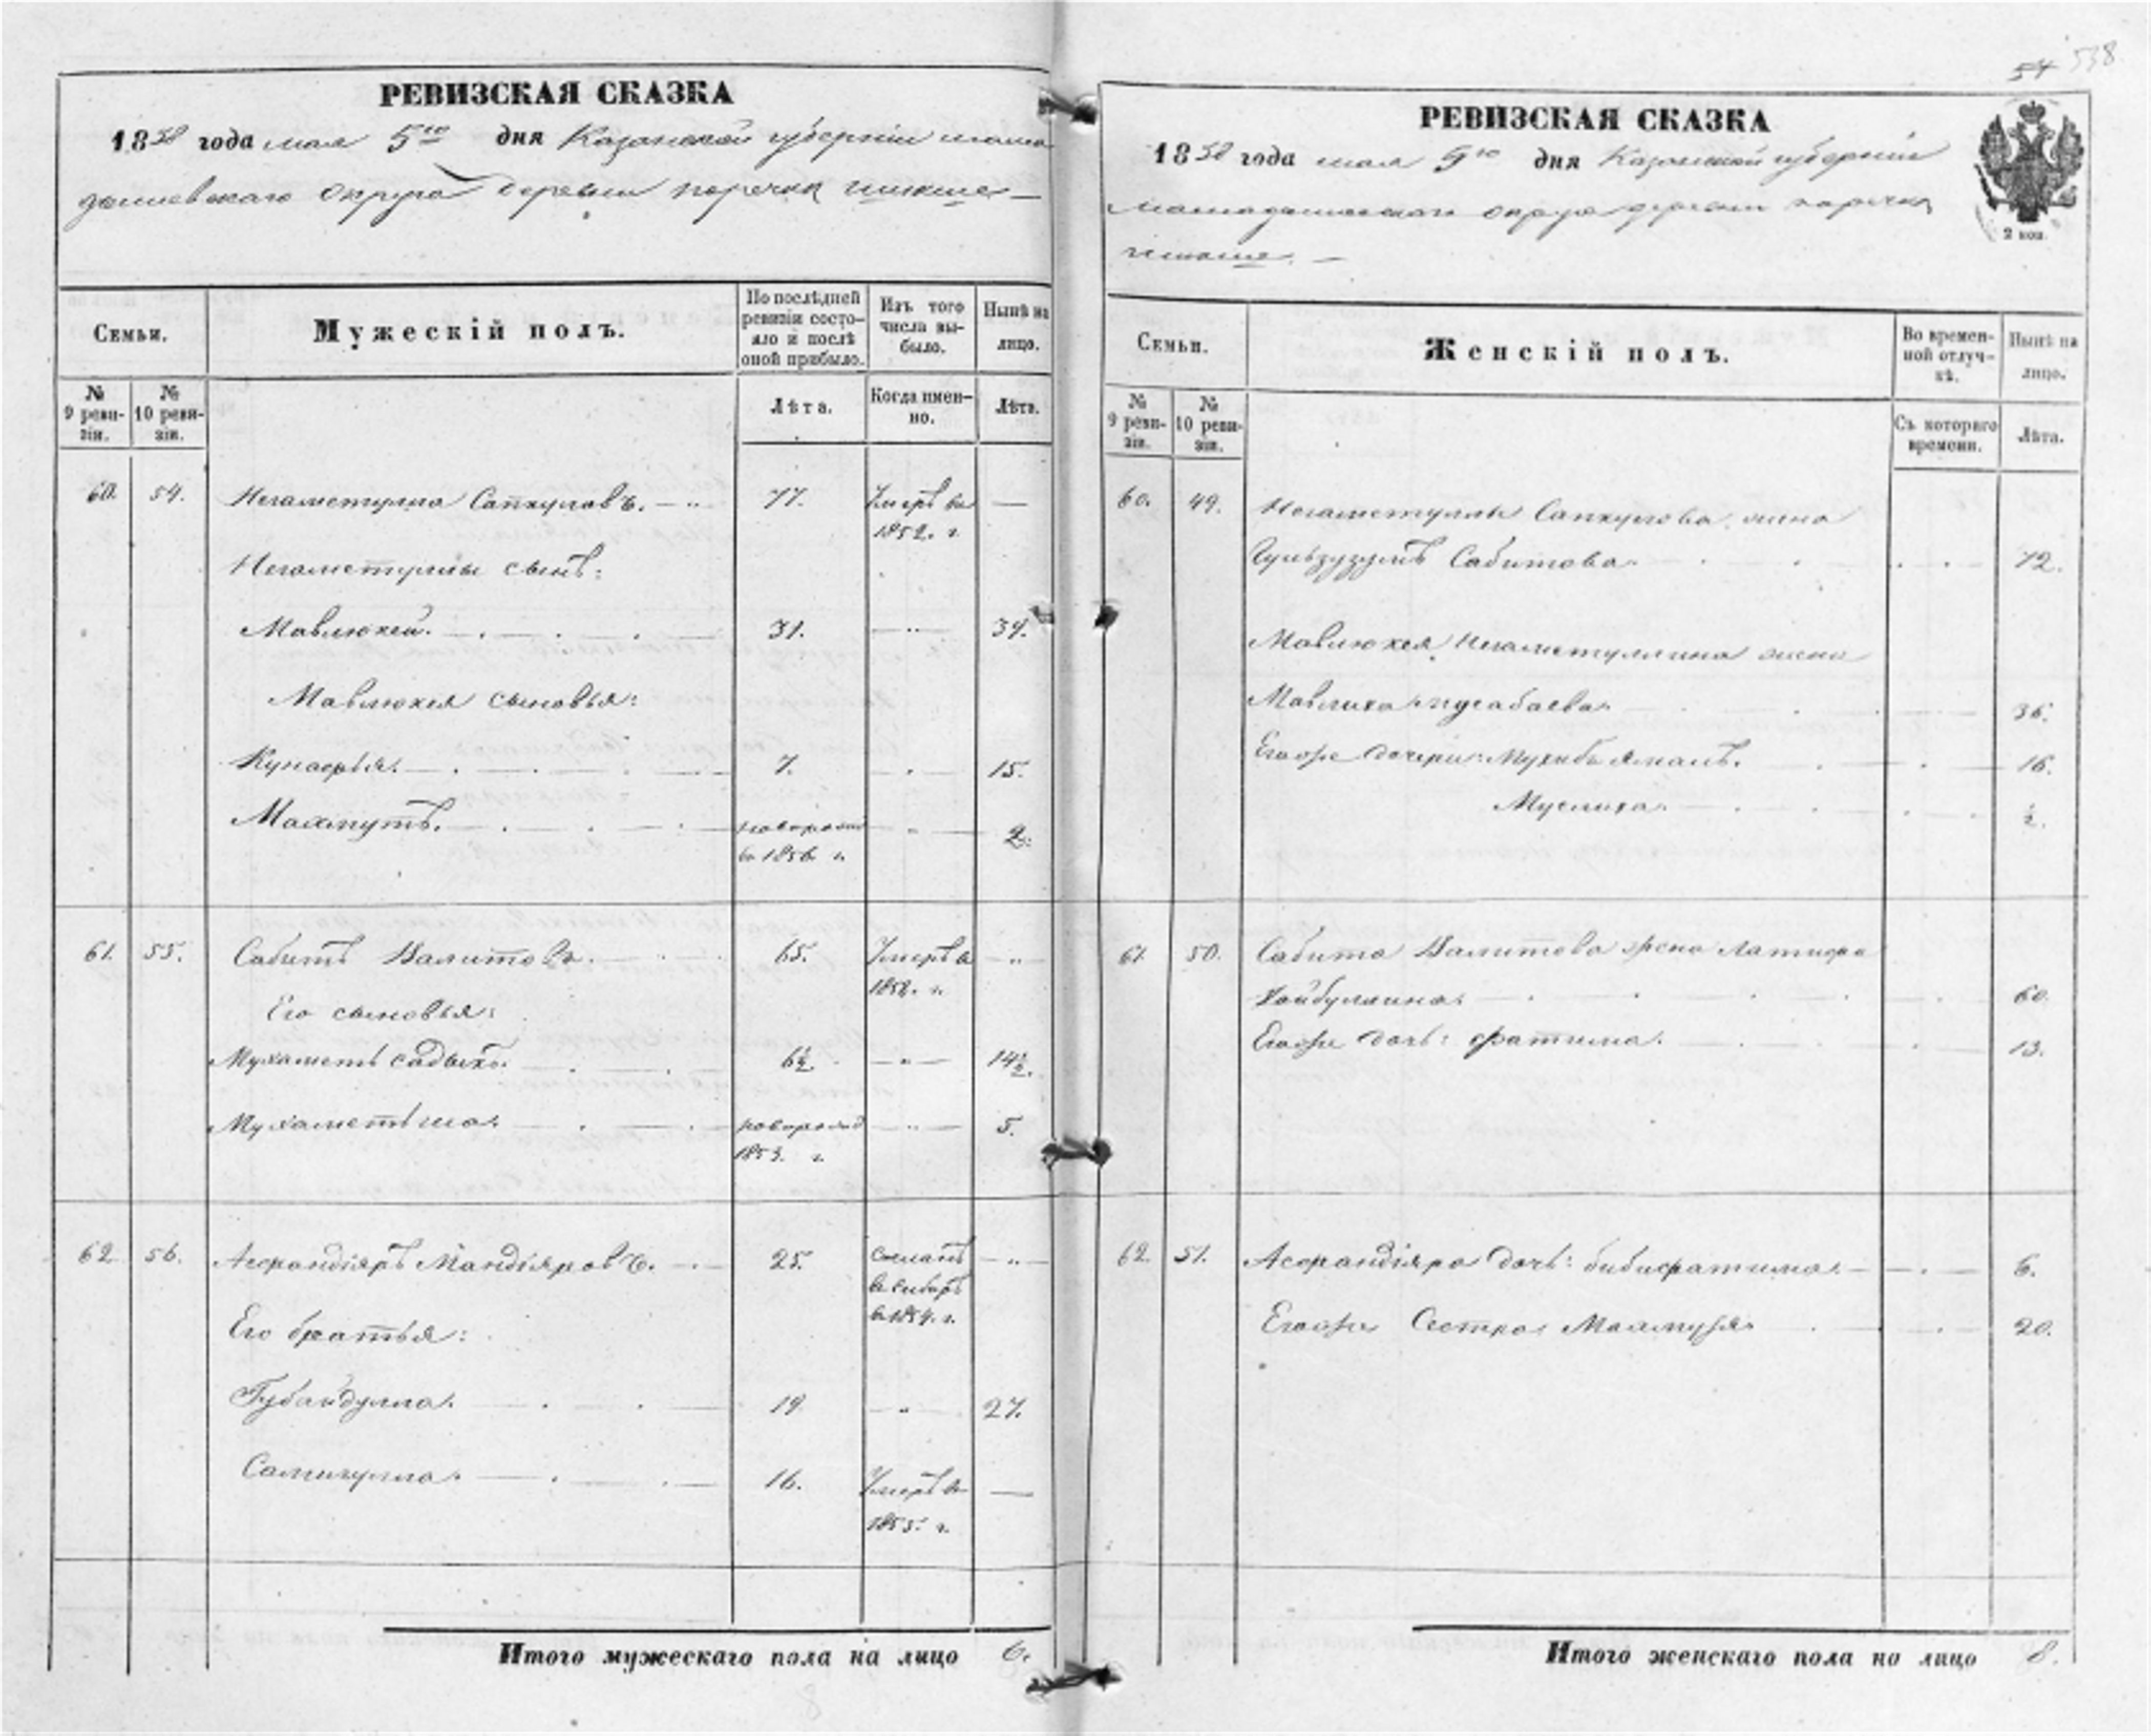 54 538
РЕВИЗСКАЯ СКАЗКА
1858 года мая 5го дня Казанской губернии мама
дышевскаго округа деревни поречки
Семьи.
Мужескій полъ.
По послѣдней ревизіи состояло и послѣ оной прибыло.
Изъ того числа выбыло.
Нынѣ на лицо.
№ 9 ревизіи.
№ 10 ревизіи.
Лѣта.
Когда именно.
Лѣта.
60. 54. Негаметулла Сапкуловъ. 77. Умеръ въ 1852. г. —
Негаметуллы сынъ:
Мавлюкей. 31. 39.
Мавлюкея сыновья:
Кунафья. 7. 15.
Махмутъ. новорожд въ 1856 г. 2.
61. 55. Сабитъ Валитовъ. 65. Умеръ в 1852. г. „
Его сыновья:
Мухаметь садыкъ. 6½. 14½.
Мухаметьша. новорожд 1853. г. 5.
62 56. Асфандіяръ Мандіяровъ. 25. сосланъ въ сибирь в 1854. г. „
Его братья:
Губайдулла. 19 27.
Самигулла. 16. Умеръ в 1855. г. —
Итого мужескаго пола на лицо 6.
РЕВИЗСКАЯ СКАЗКА
1858 года мая 5го дня Казанской губерніи
мамадышевскаго округа деревни поречки
2 коп.
Семьи.
Женскій полъ.
Во временной отлучкѣ.
Нынѣ на лицо.
№ 9 ревизіи.
№ 10 ревизіи.
Съ котораго времени.
Лѣта.
60. 49. Негаметуллы Сапкулова жена
Гульзузумъ Сабитова. 72.
Мавлюкея Негаметуллина жена
Мавлиха мусабаева. 36.
Егоже дочери: Мухибъ ямалъ. 16.
Муслиха. ½.
61. 50. Сабита Валитова жена Латифа
Хайбуллина. 60.
Егоже дочь: фатима. 13.
62. 51. Асфандіяра дочь: бибифатима. 6.
Егоже Сестра Махмузя 20.
Итого женскаго пола на лицо 8.